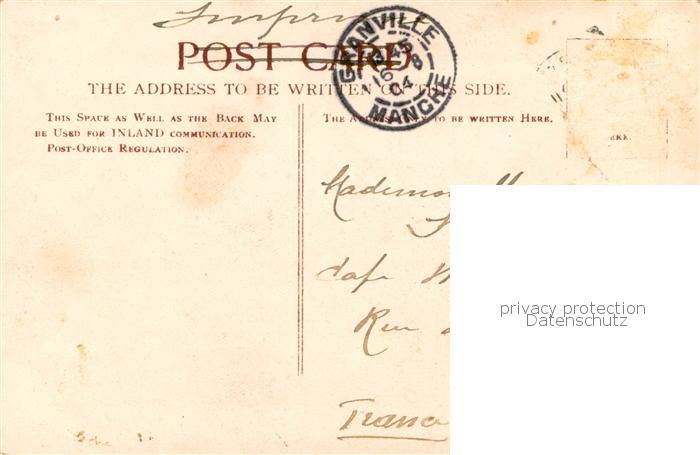 Imprimé
POST CARD.
THE ADDRESS TO BE WRITTEN ON THIS SIDE.
GRANVILLE
45
16 8
04
MANCHE
THIS SPACE AS WELL AS THE BACK MAY
BE USED FOR INLAND COMMUNICATION.
POST-OFFICE REGULATION.
THE ADDRESS ONLY TO BE WRITTEN HERE.
HERE.
Mademoiselle
Café
Rue
France
privacy protection
Datenschutz